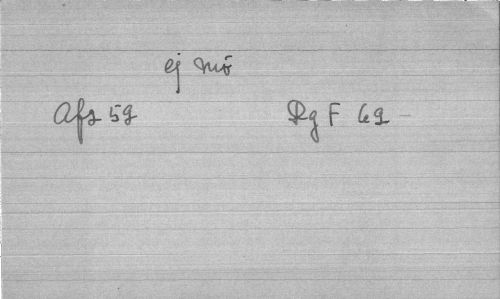 ej mö
Afz 59 RgF 69